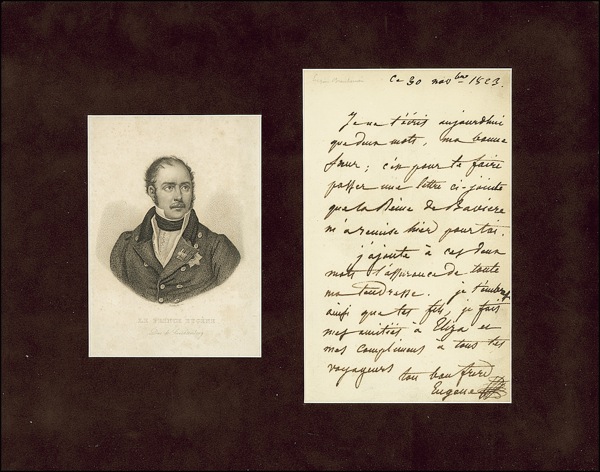 LE PRINCE EUGÈNE
Ce 30 novbre 1823.
Je ne t'écris aujourdhui
que deux mots, ma bonne
Sœur; c'est pour te faire
passer une lettre ci-jointe
que la Reine de Baviere
m'a remise hier pour toi.
j'ajoute à ces deux
mots l'assurance de toute
ma tendresse. je t'embrasse
ainsi que tes fils, je fais
mes amitiés à Eliza et
mes compliments à tous tes
voyageurs
ton bon frere
Eugene